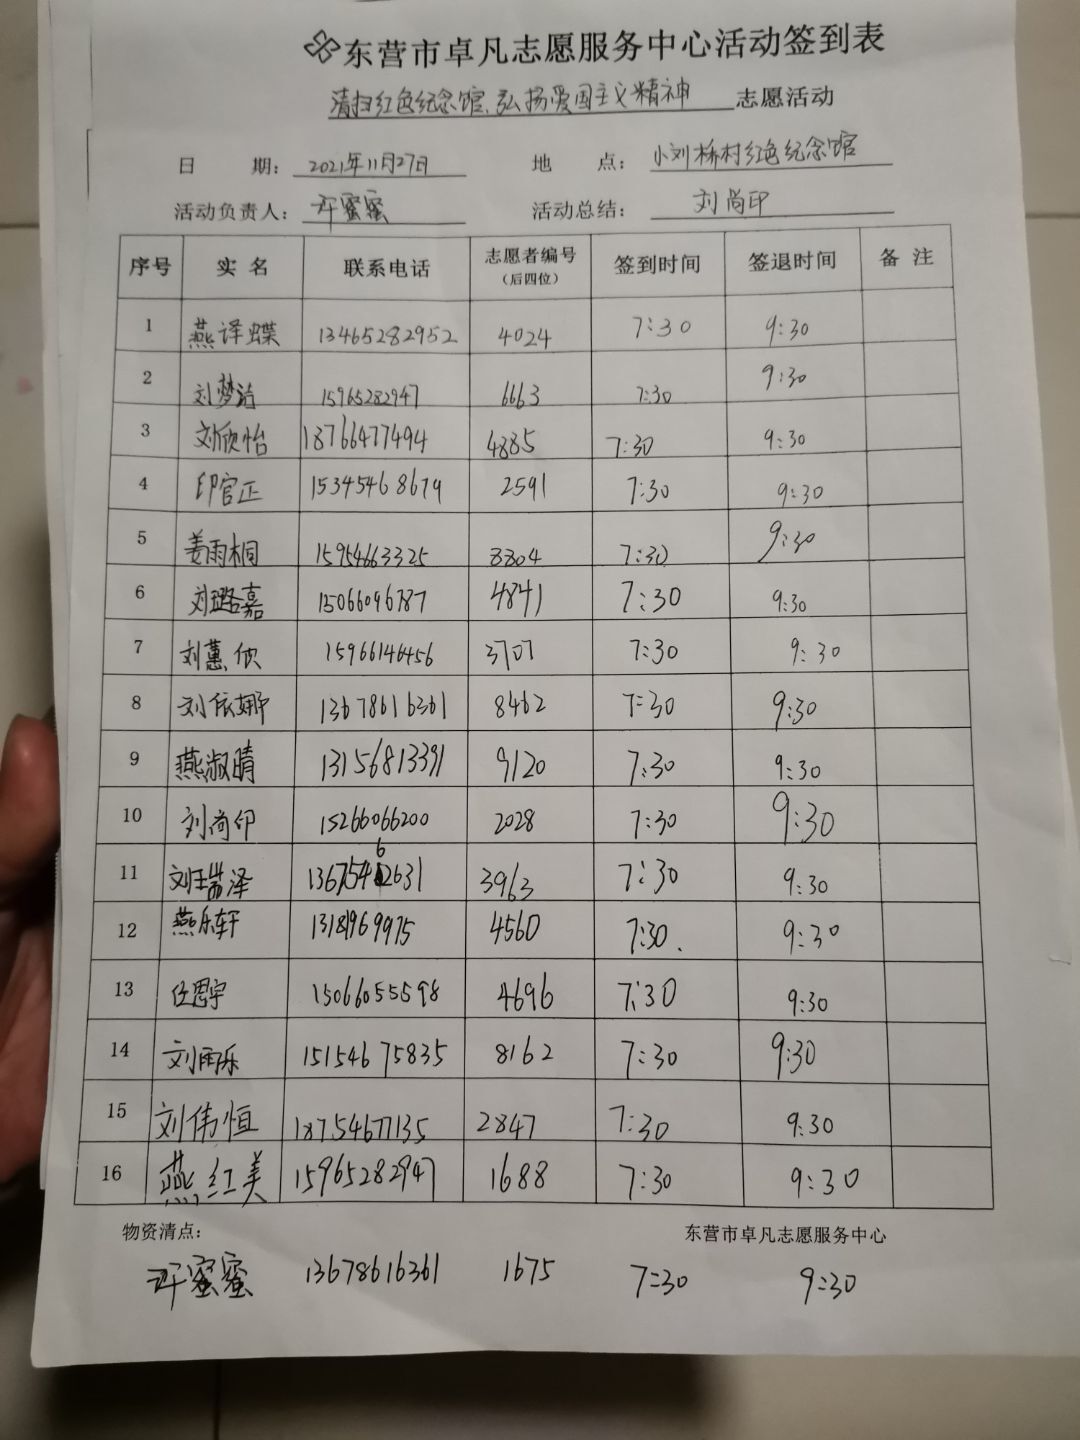 东营市卓凡志愿服务中心活动签到表
清扫红色纪念馆、弘扬爱国主义精神 志愿活动
日 期: 2021年11月27日 地 点: 小刘桥村红色纪念馆
活动负责人: 许蜜蜜 活动总结: 刘尚印
序号 实名 联系电话 志愿者编号(后四位) 签到时间 签退时间 备注
1 燕译蝶 13465282952 4024 7:30 9:30
2 刘梦 15965282947 6663 7:30 9:30
3 刘欣怡 18766477494 4885 7:30 9:30
4 印官正 15345468679 2591 7:30 9:30
5 姜雨桐 15954663325 8804 7:30 9:30
6 刘璐嘉 15066096787 4841 7:30 9:30
7 刘蕙欣 15966146456 3707 7:30 9:30
8 刘依娜 13678616361 8462 7:30 9:30
9 燕淑晴 13156813391 9120 7:30 9:30
10 刘尚印 15266066200 2028 7:30 9:30
11 刘瑞泽 13675462631 3963 7:30 9:30
12 燕乐轩 1318969975 4560 7:30. 9:30
13 任思宇 15066055598 4696 7:30 9:30
14 刘雨乐 15154675835 8162 7:30 9:30
15 刘伟恒 18754677135 2847 7:30 9:30
16 燕红美 15965282947 1688 7:30 9:30
物资清点: 东营市卓凡志愿服务中心
许蜜蜜 13678616361 1675 7:30 9:30